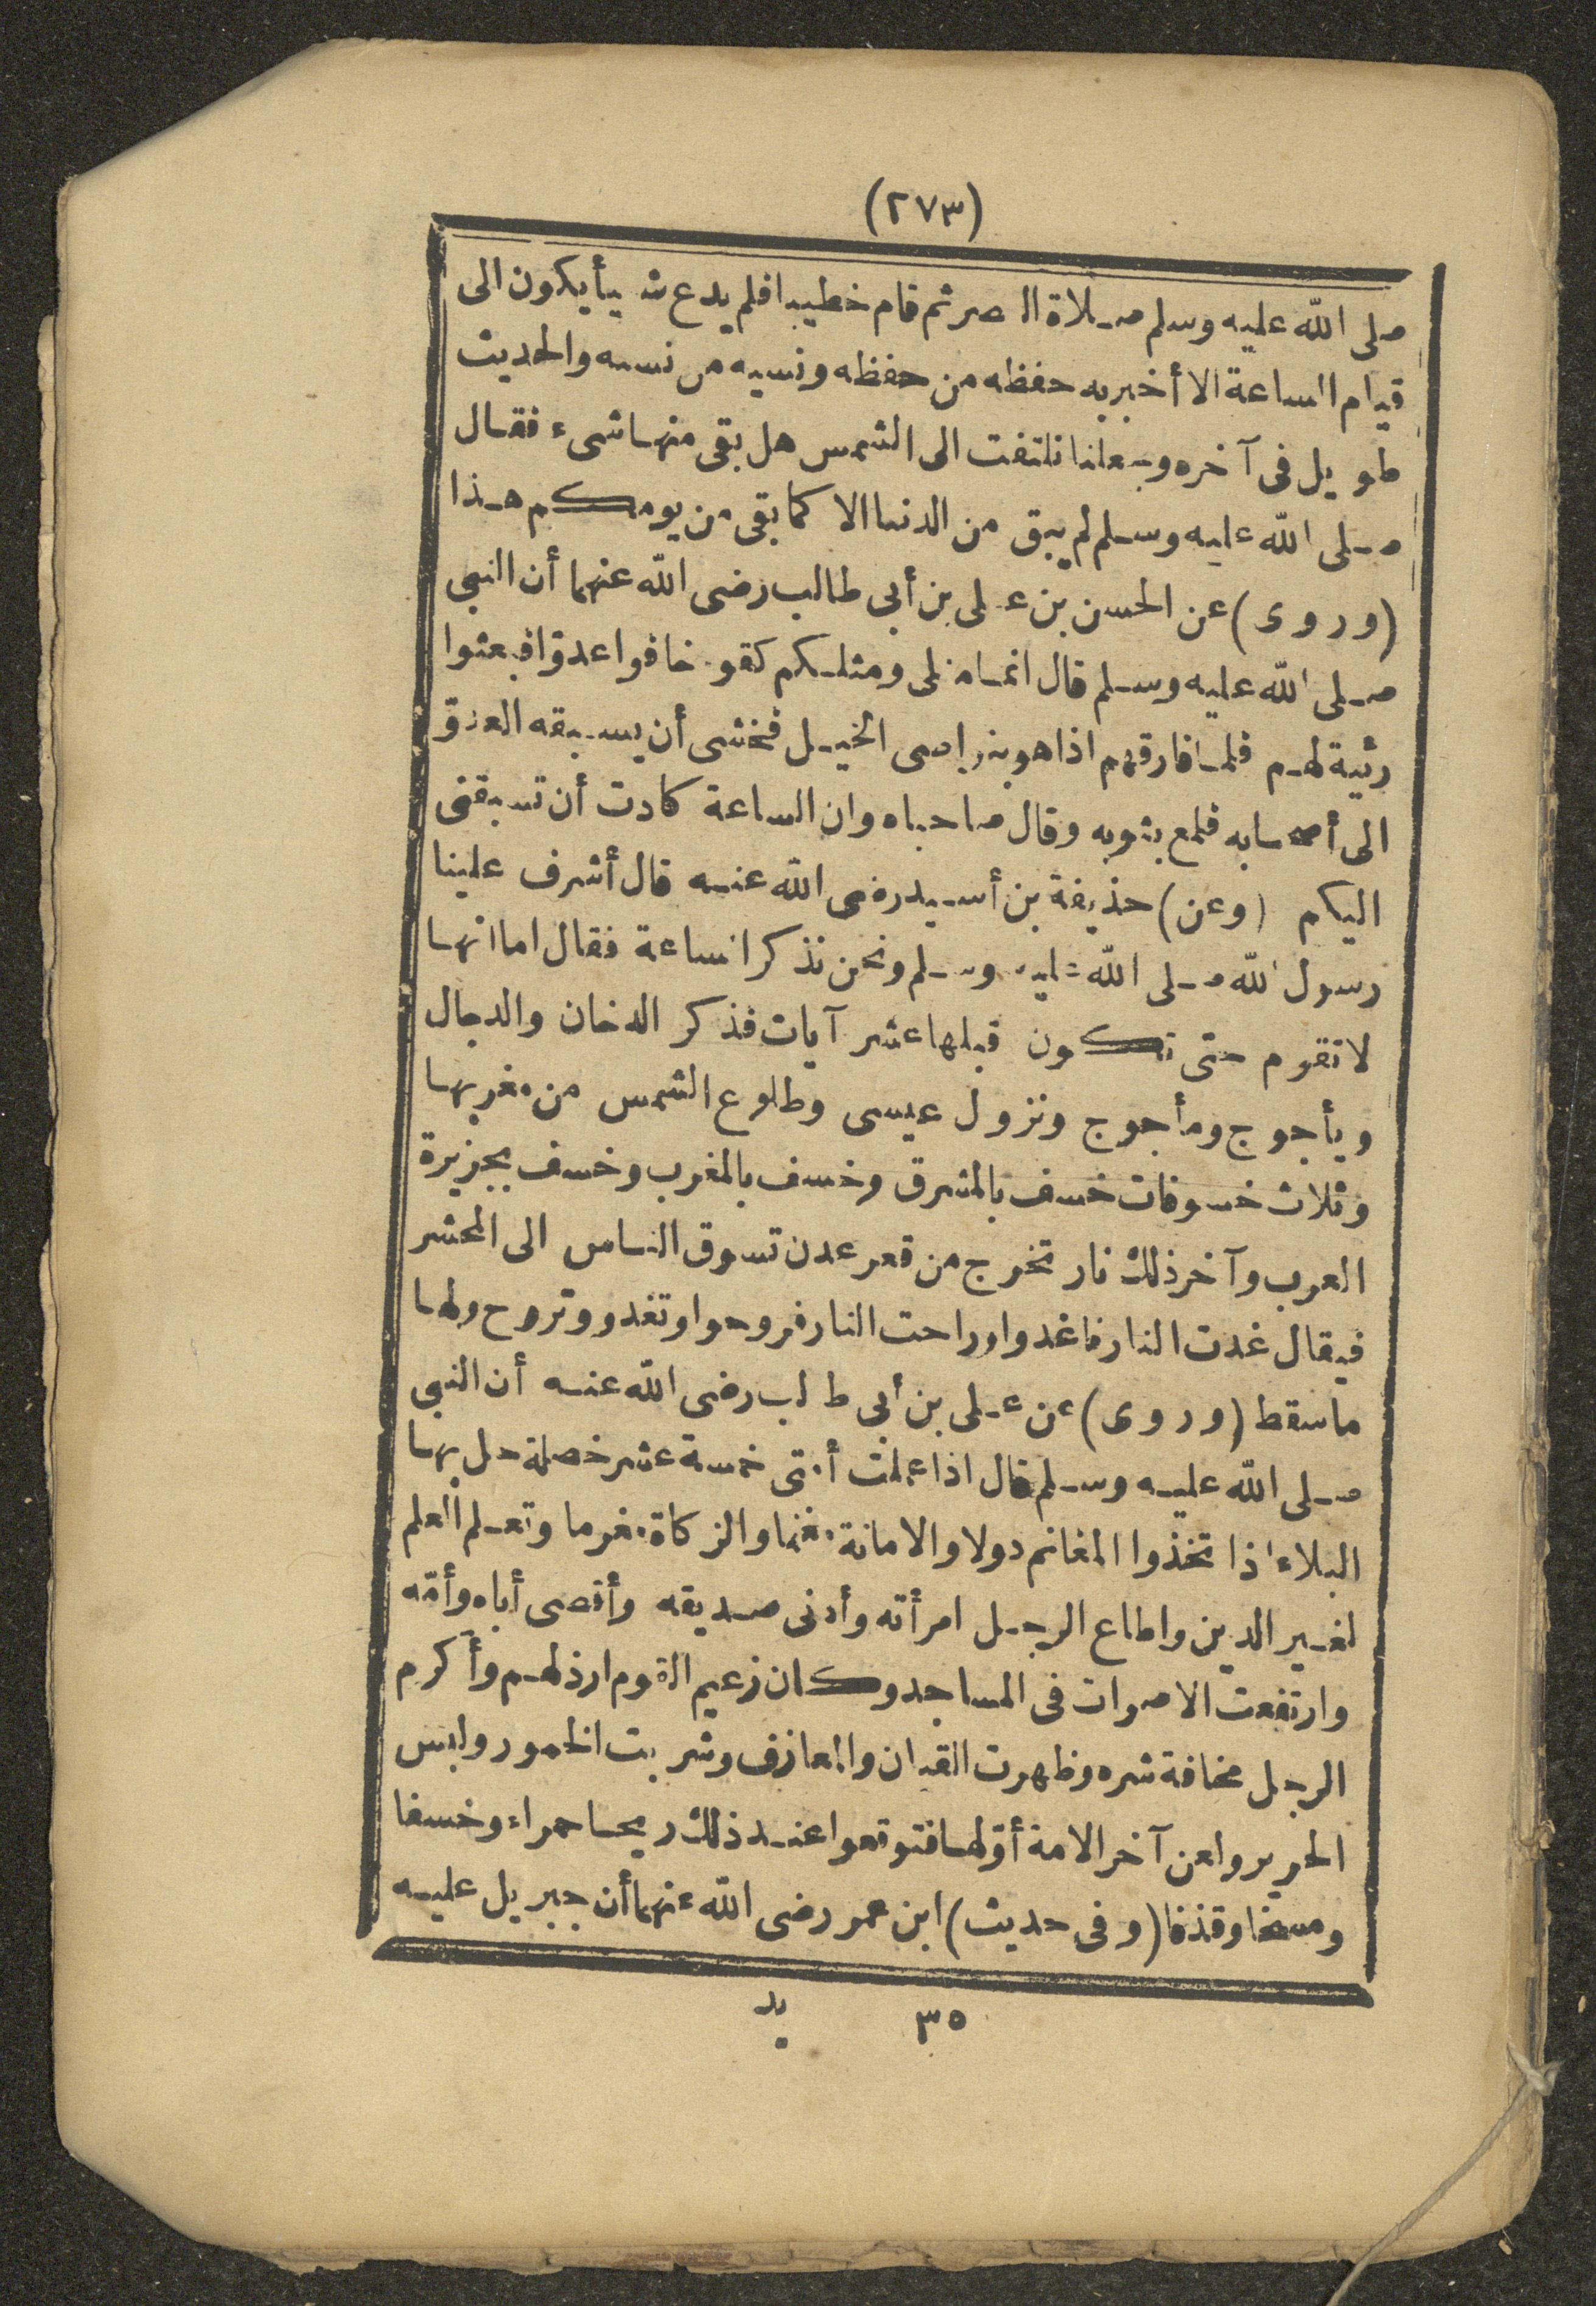 (٢٧٣)
صلى الله عليه وسلم صلاة العصر ثم قام خطيبا فلم يدع شيأ يكون الى
قيام الساعة الا أخبر به حفظه من حفظه ونسيه من نسيه والحديث
طويل فى آخره وجعلنا نلتفت الى الشمس هل بقى منها شىء فقال
صلى الله عليه وسلم لم يبق من الدنيا الا كما بقى من يومكم هذا
(وروى) عن الحسن بن على بن أبى طالب رضى الله عنهما أن النبى
صلى الله عليه وسلم قال انما مثلى ومثلكم كقوم خافوا عدوّا فبعثوا
رئية لهم فلما فارقهم اذا هو بنواصى الخيل فخشى أن يسبقه العدوّ
الى أصحابه فلمع بثوبه وقال صاحباه وان الساعة كادت أن تسبقنى
اليكم (وعن) حذيفة بن أسيد رضى الله عنه قال أشرف علينا
رسول الله صلى الله عليه وسلم ونحن نذكر الساعة فقال اما انها
لا تقوم حتى تكون قبلها عشر آيات فذكر الدخان والدجال
ويأجوج ومأجوج ونزول عيسى وطلوع الشمس من مغربها
وثلاث خسوفات خسف بالمشرق وخسف بالمغرب وخسف بجزيرة
العرب وآخر ذلك نار تخرج من قعر عدن تسوق الناس الى المحشر
فيقال غدت النار فاغدوا وراحت النار فروحوا وتغدو وتروح ولها
ما سقط (وروى) عن على بن أبى طالب رضى الله عنه أن النبى
صلى الله عليه وسلم قال اذا عملت أمتى خمسة عشر خصلة حل بها
البلاء اذا تخذوا المغانم دولا والامانة مغنما والزكاة مغرما وتعلم العلم
لغير الدين واطاع الرجل امرأته وأدنى صديقه وأقصى أباه وأمّه
وارتفعت الاصوات فى المساجد وكان زعيم القوم ارذلهم وأكرم
الرجل مخافة شره وظهرت القيان والمعازف وشربت الخمور ولبس
الحرير ولعن آخر الامة أوّلها فتوقعوا عند ذلك ريحا حمراء وخسفا
ومسخا وقذفا (وفى حديث) ابن عمر رضى الله عنهما أن جبريل عليه
٣٥ يد